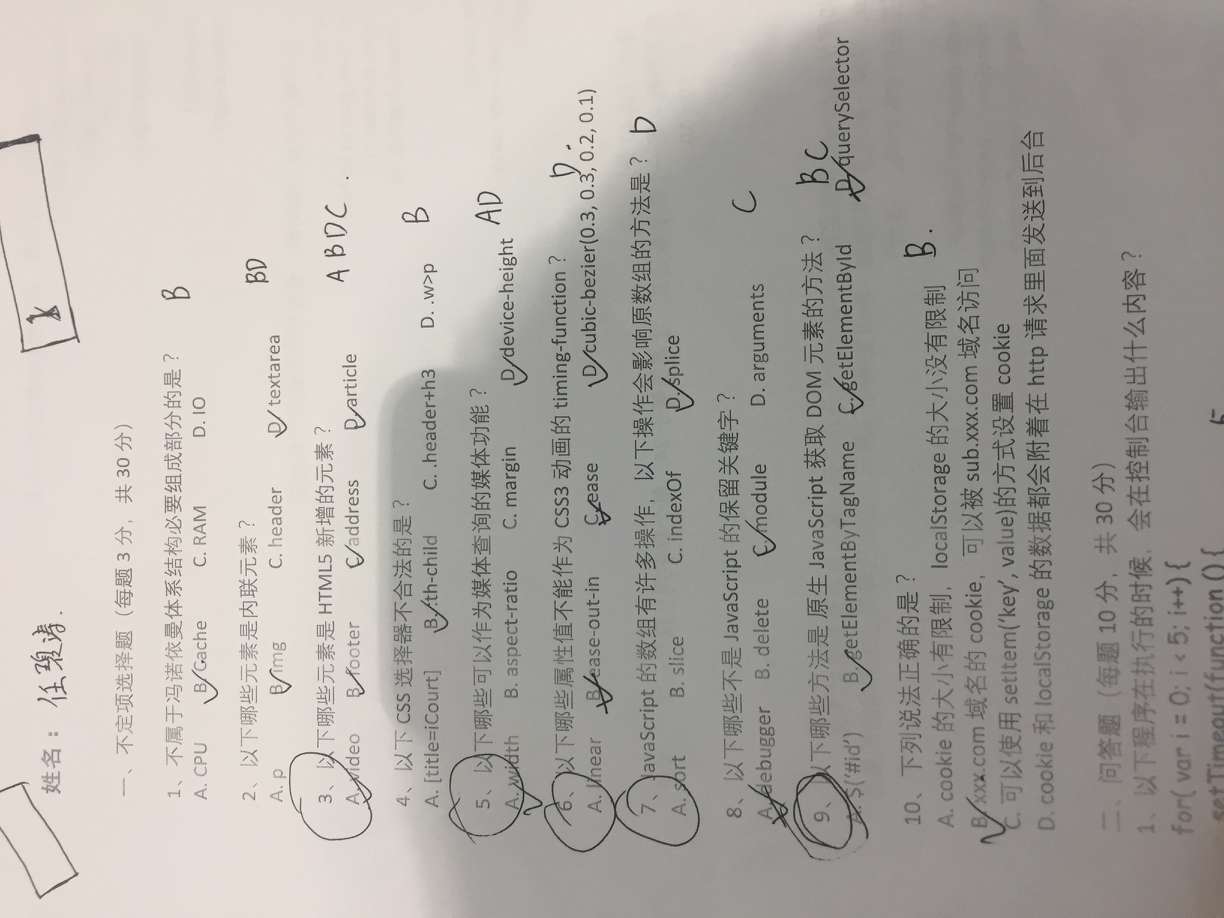 姓名：任碧涛.
一、不定项选择题（每题 3 分，共 30 分）
1、不属于冯诺依曼体系结构必要组成部分的是？ B
A. CPU B. Cache C. RAM D. IO
2、以下哪些元素是内联元素？ BD
A. p B. img C. header D. textarea
3、以下哪些元素是 HTML5 新增的元素？ ABDC.
A. video B. footer C. address D. article
4、以下 CSS 选择器不合法的是？ B
A. [title=iCourt] B. :th-child C. .header+h3 D. .w>p
5、以下哪些可以作为媒体查询的媒体功能？ AD
A. width B. aspect-ratio C. margin D. device-height
6、以下哪些属性值不能作为 CSS3 动画的 timing-function？ D.
A. linear B. ease-out-in C. ease D. cubic-bezier(0.3, 0.3, 0.2, 0.1)
7、JavaScript 的数组有许多操作，以下操作会影响原数组的方法是？ D
A. sort B. slice C. indexOf D. splice
8、以下哪些不是 JavaScript 的保留关键字？ C
A. debugger B. delete C. module D. arguments
9、以下哪些方法是 原生 JavaScript 获取 DOM 元素的方法？ BC
A. $('#id') B. getElementByTagName C. getElementById D. querySelector
10、下列说法正确的是？ B.
A. cookie 的大小有限制，localStorage 的大小没有限制
B. xxx.com 域名的 cookie，可以被 sub.xxx.com 域名访问
C. 可以使用 setItem('key', value)的方式设置 cookie
D. cookie 和 localStorage 的数据都会附着在 http 请求里面发送到后台
二、问答题（每题 10 分，共 30 分）
1、以下程序在执行的时候，会在控制台输出什么内容？
for( var i = 0; i < 5; i++) {
setTimeout(function () {